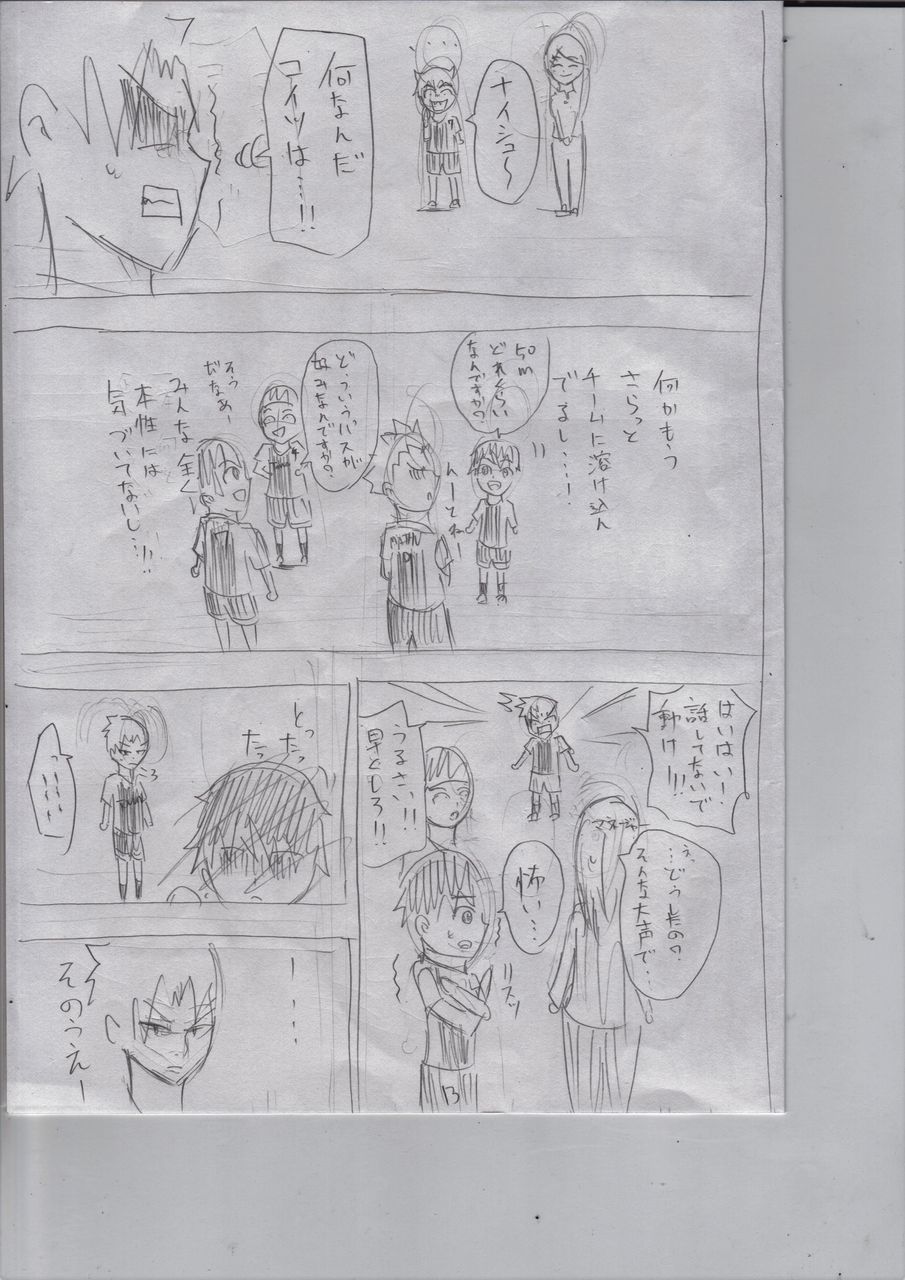 ナイシュ～
7
何なんだ
コイツは…!!
何かもう
さらっと
チームに溶け込ん
でるし…!
50m
どれくらい
なんですか?
んーとねー
ど、ういうパスが
好みなんですか?
そう
だなあー
みんな全く
本性には
気づいてないし…!!!
はいはい!
話してないで
動け!!!
マネージャー
え、
…どうしたの?
そんな大声で…
うるさい!!
早くしろ!!
怖い…
13
とっ
たっ
たっ
っ……
そのうえー